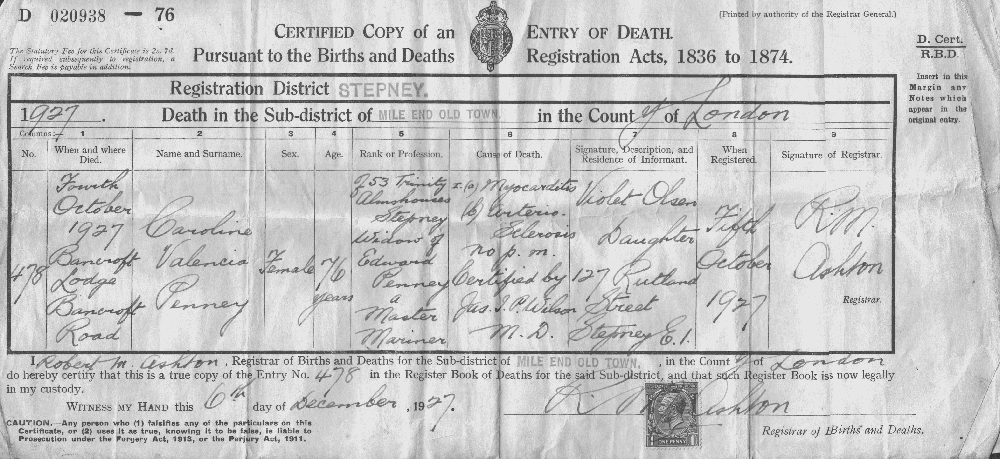 D 020938 — 76
CERTIFIED COPY of an ENTRY OF DEATH.
Pursuant to the Births and Deaths Registration Acts, 1836 to 1874.
(Printed by authority of the Registrar General.)
The Statutory Fee for this Certificate is 2s. 7d.
If required subsequently to registration, a
Search Fee is payable in addition.
D. Cert.
R.B.D.
Insert in this
Margin any
Notes which
appear in the
original entry.
Registration District STEPNEY.
1927. Death in the Sub-district of MILE END OLD TOWN in the County of London
Columns:— 1 2 3 4 5 6 7 8 9
No. When and where Died. Name and Surname. Sex. Age. Rank or Profession. Cause of Death. Signature, Description, and Residence of Informant. When Registered. Signature of Registrar.
478
Fourth
October
1927
Bancroft
Lodge
Bancroft
Road
Caroline
Valencia
Penney
Female
76
years
of 53 Trinity
Almshouses
Stepney
Widow of
Edward
Penney
a
Master
Mariner
I. (a) Myocarditis
(b) Arterio.
Sclerosis
no p.m.
Certified by
Jas. S. P. Wilson
M.D.
Violet Olsen
Daughter
127 Rutland
Street
Stepney E.1.
Fifth
October
1927
R.M.
Ashton
Registrar.
I, Robert M. Ashton, Registrar of Births and Deaths for the Sub-district of MILE END OLD TOWN, in the County of London
do hereby certify that this is a true copy of the Entry No. 478 in the Register Book of Deaths for the said Sub-district, and that such Register Book is now legally
in my custody.
WITNESS MY HAND this 6th day of December, 1927.
R. M. Ashton
CAUTION.—Any person who (1) falsifies any of the particulars on this
Certificate, or (2) uses it as true, knowing it to be false, is liable to
Prosecution under the Forgery Act, 1913, or the Perjury Act, 1911.
ONE PENNY
Registrar of Births and Deaths.